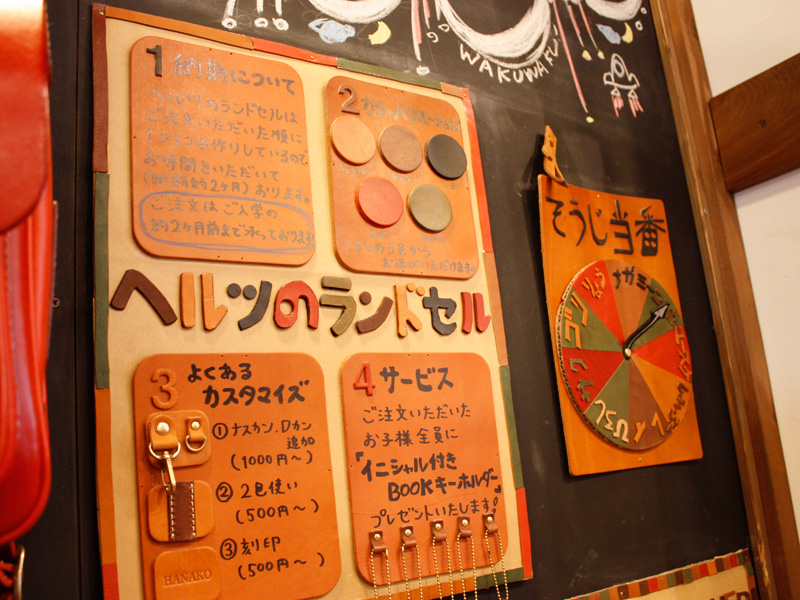 WAKUWAFU
1 納期について
ヘルツのランドセルは
ご注文いただいた順に
1つ1つ手作りしているので
お時間をいただいて
(納期約2ヶ月)おります。
ご注文はご入学の
約2ヶ月前まで承っております
2 カラーバリエーション
こちらの5色から
お選びいただけます。
ヘルツのランドセル
3 よくある
カスタマイズ
① ナスカン、Dカン
追加
(1000円〜)
② 2色使い
(500円〜)
③ 刻印
(500円〜)
HANAKO
4 サービス
ご注文いただいた
お子様全員に
「イニシャル付き
BOOKキーホルダー」
プレゼントいたします!
そうじ当番
ナガミー